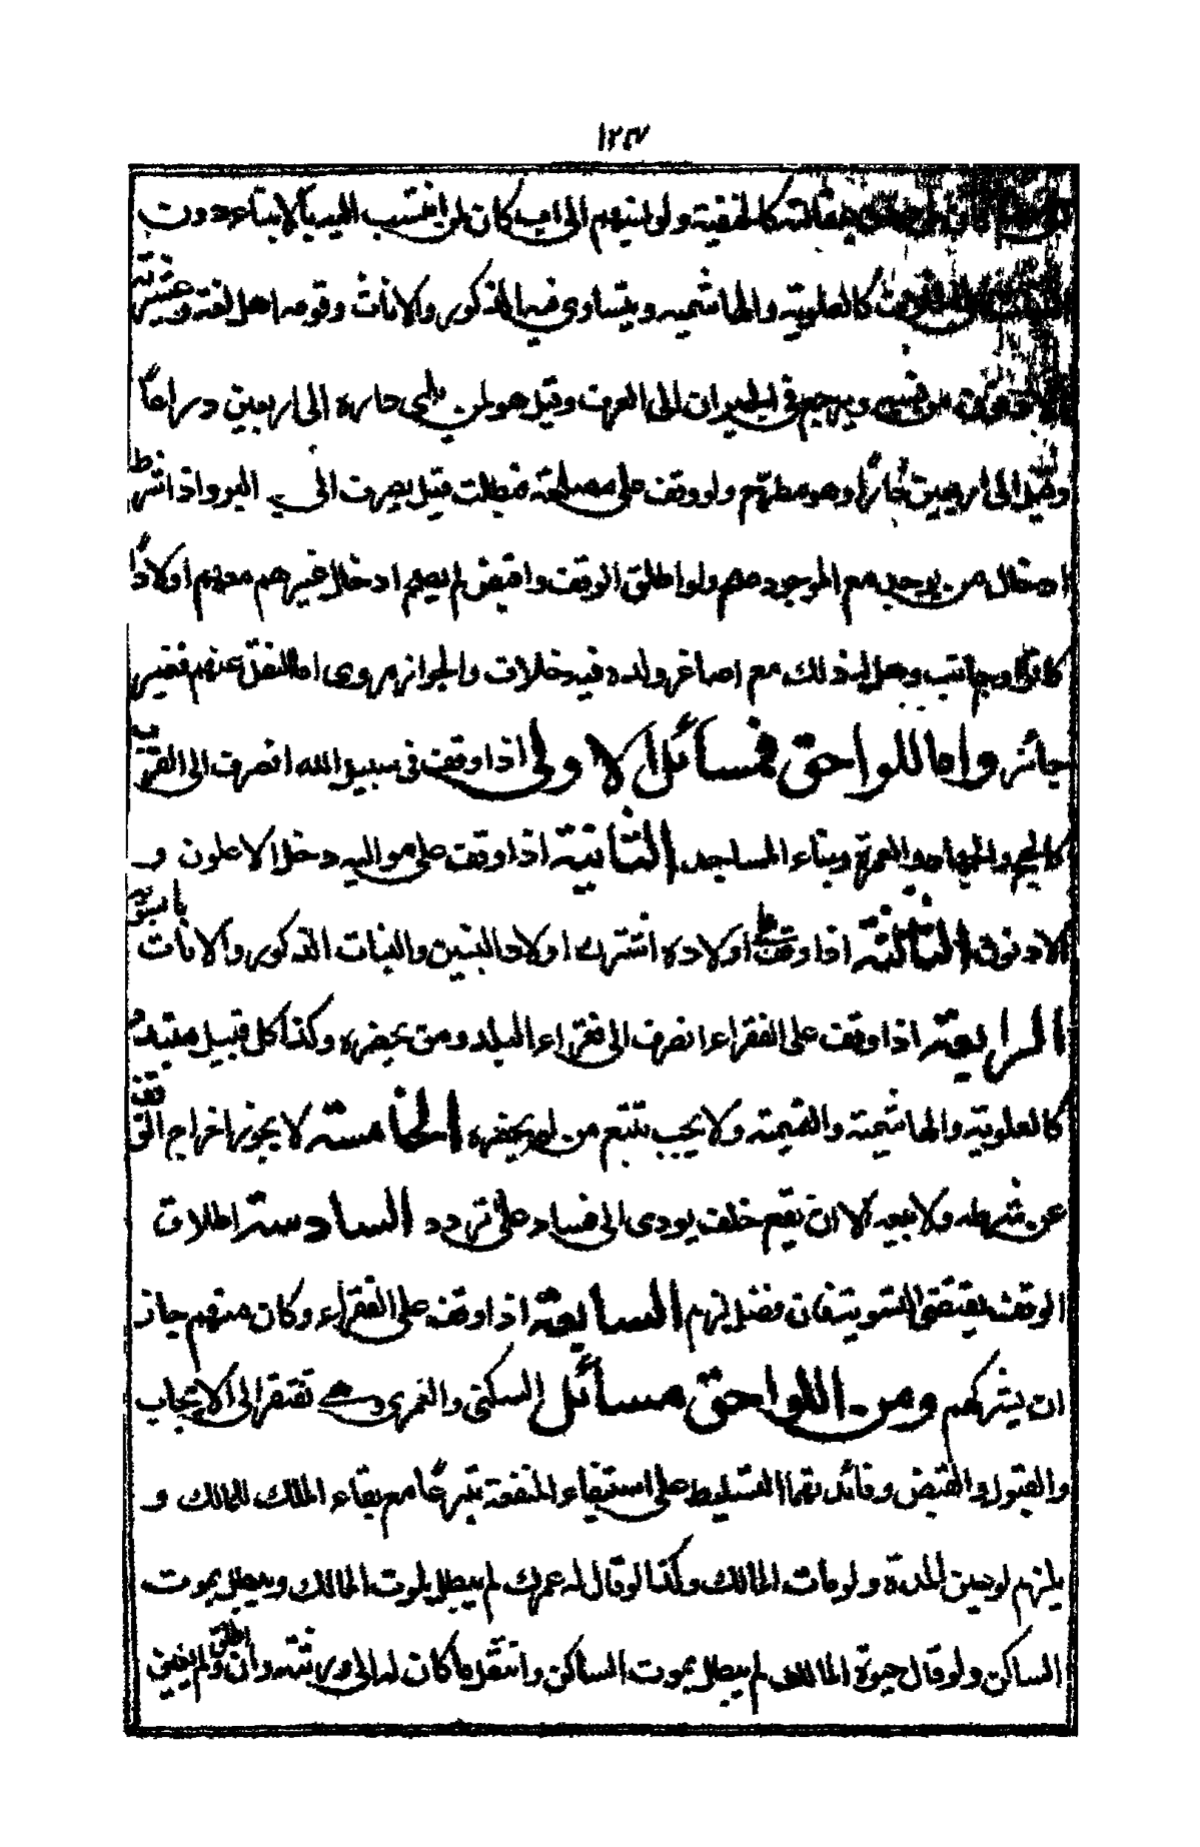 ١٢٤٧
مقالته كالحنفية ولو نسبهم الى اب كان لمن انتسب اليه بالابناء دون
كالعلوية والهاشمية ويتساوى فيه الذكور والاناث وقومه اهل لغته وعشيرته
من قومه ويرجع في الجيران الى العرف وقيل هو لمن يلى داره الى اربعين ذراعًا
وقيل الى اربعين دارًا وهو مطرح ولو وقف على مصلحة فبطلت قيل يصرف الى البر واذا شرط
ادخال من يوجد مع الموجود صح ولو اطلق الوقف واقبض لم يصح ادخال غيرهم معهم اولادًا
كانوا او اجانب وهل له ذلك مع اصاغر ولده فيه خلاف والجواز مروى اما النقل عنهم فغير
جائز واما اللواحق فمسائل الاولى اذا وقف في سبيل الله انصرف الى القرب
كالحج والجهاد والعمرة وبناء المساجد الثانية اذا وقف على مواليه دخل الاعلون و
الادنون الثالثة اذا وقف على اولاده اشترك اولاد البنين والبنات الذكور والاناث بالسوية
الرابعة اذا وقف على الفقراء انصرف الى فقراء البلد ومن يحضره وكذا كل قبيل متبدد
كالعلوية والهاشمية والتميمية ولا يجب تتبع من لم يحضره الخامسة لا يجوز اخراج الوقف
عن شرطه ولا بيعه الا ان يقع خلف يودى الى فساد على تردد السادسة اطلاق
الوقف يقتضى التسوية فان فضل لزم السابعة اذا وقف على الفقراء وكان منهم جاز
ان يشركهم ومن اللواحق مسائل السكنى والعمرى وهي تفتقر الى الايجاب
والقبول والقبض وفائدتهما التسليط على استيفاء المنفعة تبرعًا مع بقاء الملك للمالك و
يلزم لو عين المدة ولو مات المالك وكذا لو قال له عمرك لم يبطل بموت المالك ويبطل بموت
الساكن ولو قال حيوة المالك لم يبطل بموت الساكن وانتقل ما كان له الى ورثته وان اطلق ولم يعين